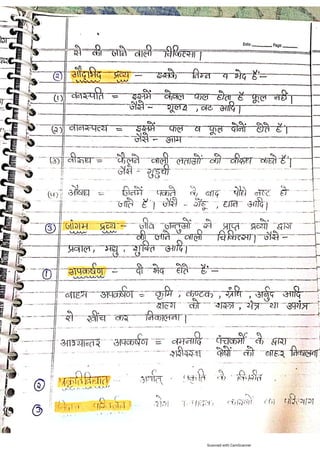 Date Page
से की जाने वाली चिकित्सा।
(2) औद्भिद द्रव्य :- इसके निम्न 4 भेद हैं:-
(1) वनस्पति = इसमें केवल फल होता है फूल नहीं।
जैसे - गूलर, वट आदि।
(2) वानस्पत्य = इसमें फल व फूल दोनों होते हैं।
जैसे - आम
(3) वीरूध = फैलने वाली लताओं को वीरूध कहते हैं।
जैसे - गुडूची
(4) औषध = जिनमें पकने के बाद पौधे नष्ट हो
जाते हैं। जैसे - गेंहू, धान आदि।
(3) जांगम द्रव्य :- जीव जन्तुओं से प्राप्त द्रव्यों द्वारा
की जाने वाली चिकित्सा। जैसे -
प्रवाल, मधु, शुक्ति आदि।
(1) अपकर्षण :- दो भेद होते हैं:-
बाह्य अपकर्षण = कृमि, कण्टक, ग्रंथि, अर्बुद आदि
शल्य को शस्त्र, यंत्र या उपयंत्र
से खींच कर निकालना।
आभ्यान्तर अपकर्षण = वमनादि पंचकर्मों के द्वारा
दोषों को बाहर निकालना
(2) प्रकृतिविघात अर्थात् प्रकृति के विपरीत
(3) का परित्याग
Scanned with CamScanner